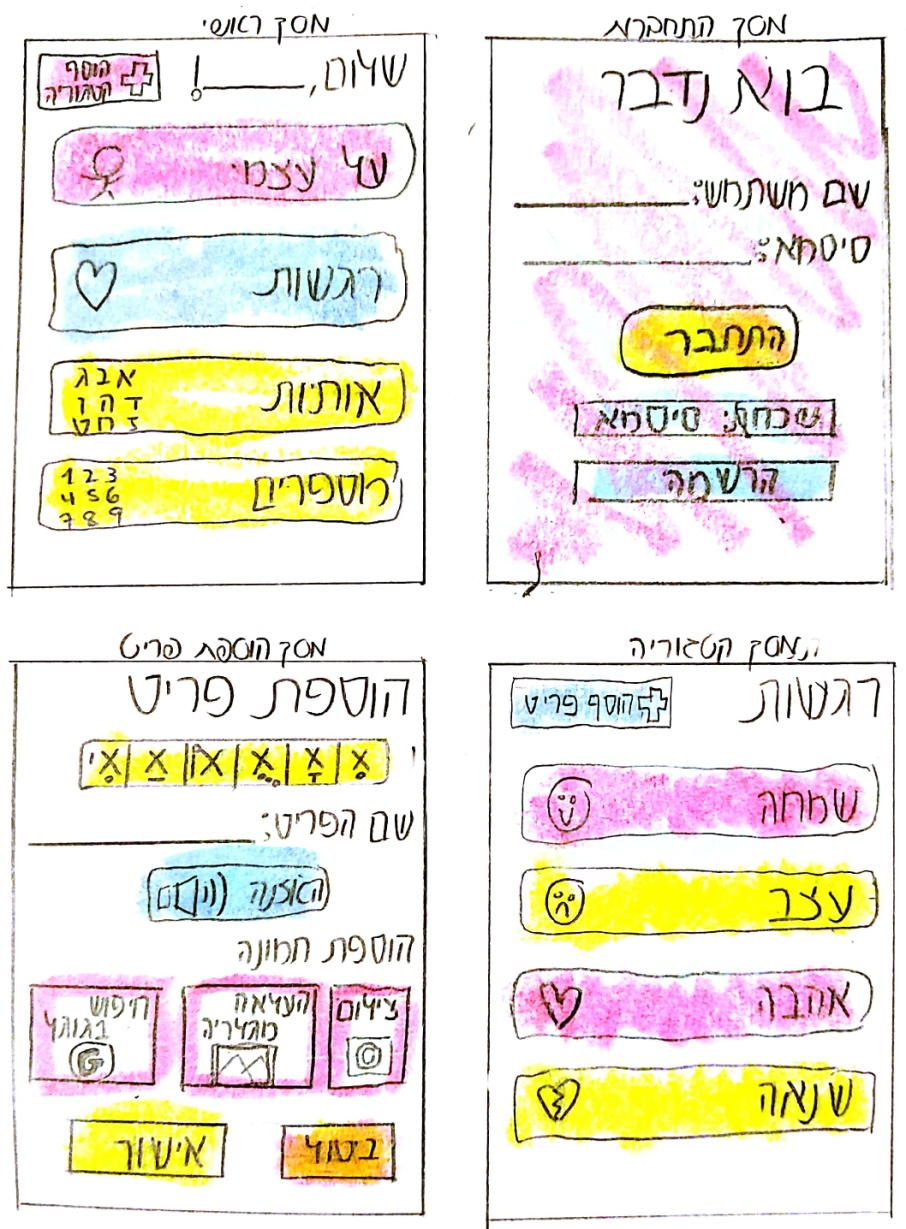 מסך התחברות
בוא נדבר
שם משתמש:
סיסמא:
התחבר
שכחתי סיסמא
הרשמה
מסך ראשי
שלום, ______!
הוסף
קטגוריה
על עצמי
רגשות
אותיות
א ב ג
ד ה ו
ז ח ט
מספרים
1 2 3
4 5 6
7 8 9
מסך קטגוריה
רגשות
הוסף פריט
שמחה
עצב
אהבה
שנאה
מסך הוספת פריט
הוספת פריט
שם הפריט:
האזנה
הוספת תמונה
צילום
העלאה
מגלריה
חיפוש
בגוגל
G
ביטול
אישור